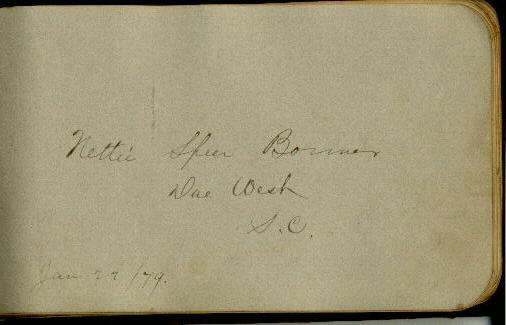 Nettie Speer Bonner
Due West
S.C.
Jan 22/79.